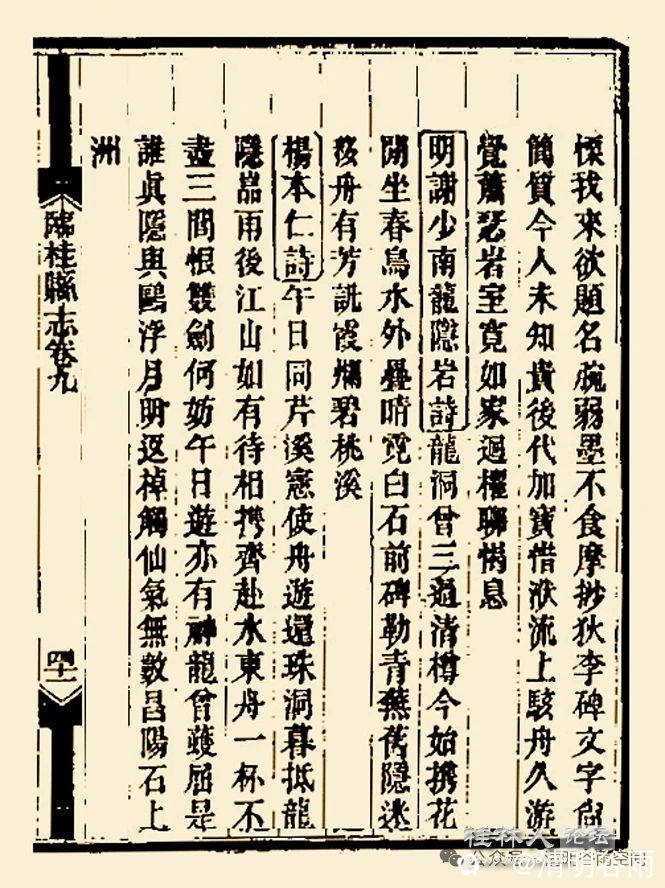 慄我來欲題名疏弱墨不食摩抄狄李碑文字尙
簡質今人未知貴後代加寶惜洑流上駭舟久游
覺蕭瑟岩室寛如家迴櫂聊憇息
明謝少南龍隱岩詩龍洞曾三過清樽今始携花
閒坐春鳥水外疊晴霓白石前碑勒青蕪舊隱迷
移舟有芳訊霞爛碧桃溪
楊本仁詩午日同芹溪憲使舟遊還珠洞暮抵龍
隱嵓雨後江山如有待相携齊赴水東舟一杯不
盡三閭恨雙劍何妨午日遊亦有神龍曾蠖屈是
誰眞隱與鷗浮月明返棹觴仙氣無數昌陽石上
洲
臨桂縣志卷九
桂林人论坛
公众号
@清明谷雨